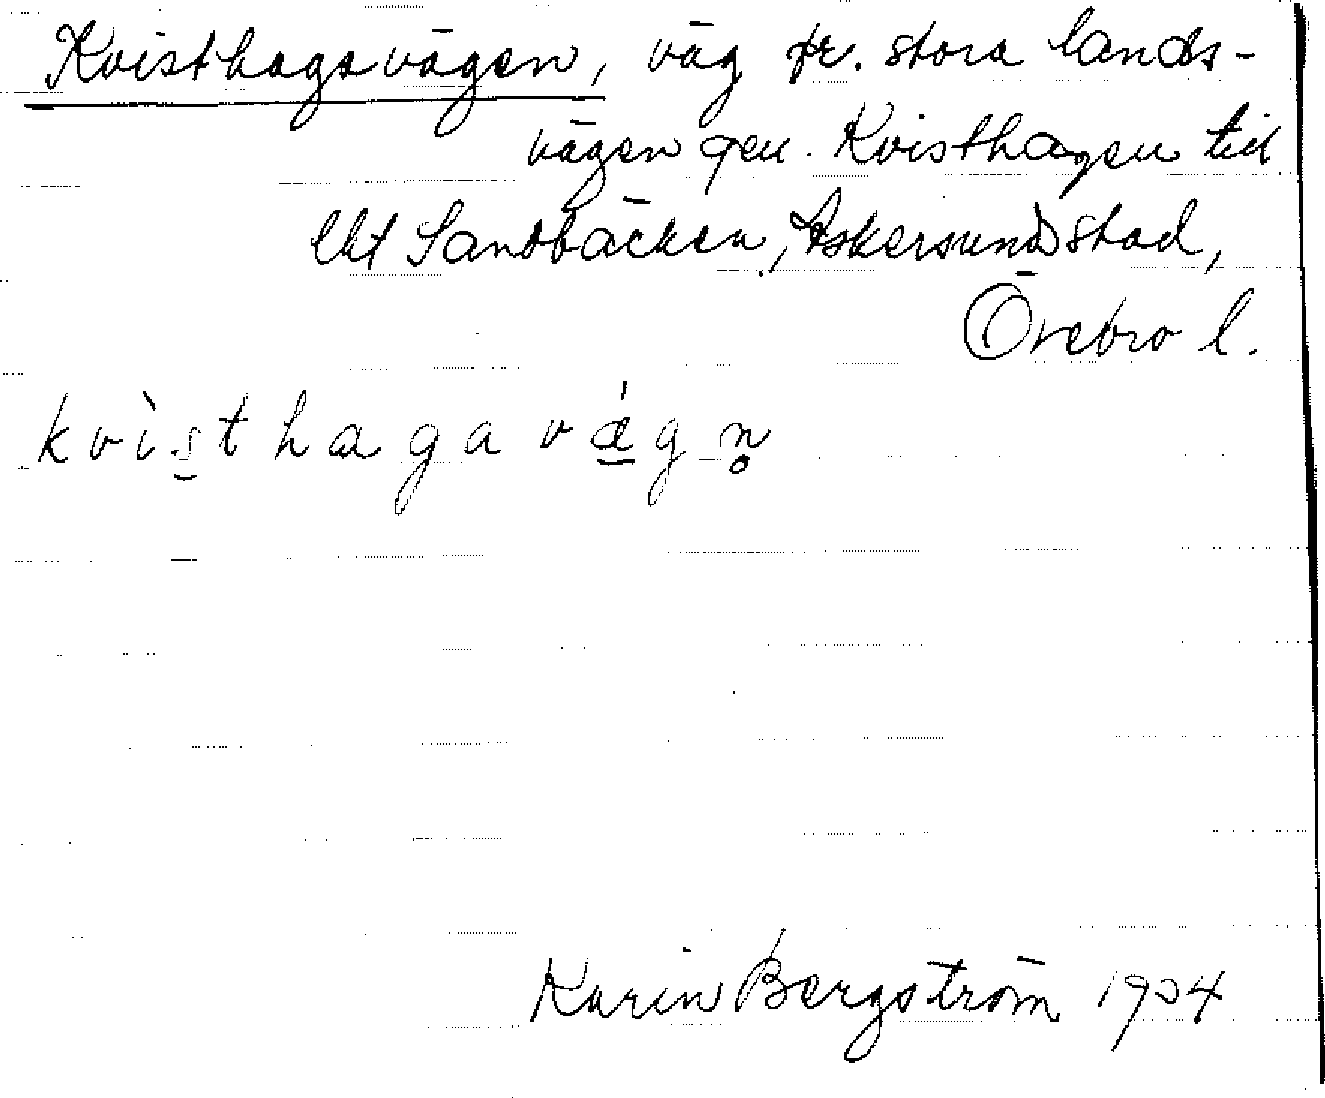 Kvisthagavägen, väg fr. stora lands-
vägen gen. Kvisthagen till
Askersunds stad,
Örebro l.
kvìsthagavá̱gn̥
Karin Bergström 1934